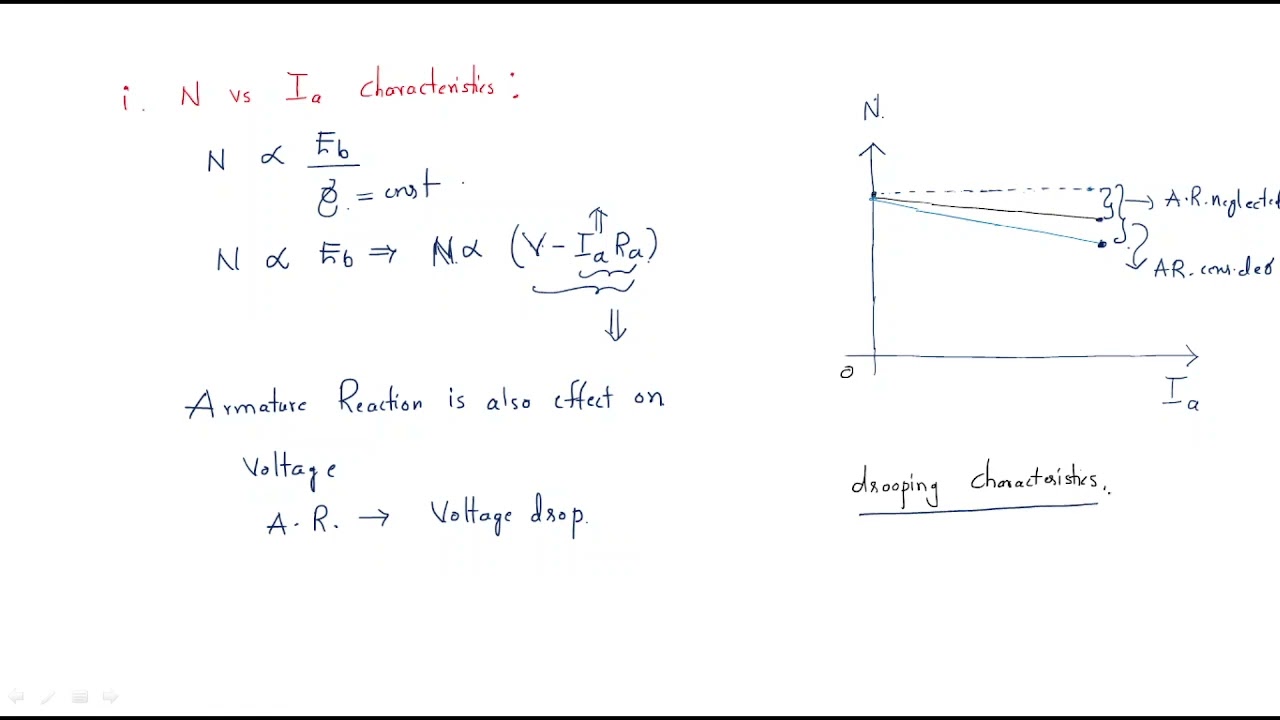 i. N vs Ia characteristics:
N ∝ Eb
Ø = const.
N ∝ Eb ⇒ N ∝ (V - Ia Ra)
Armature Reaction is also effect on
Voltage
A.R. → Voltage drop.
N.
A.R. neglected
AR. consider
0
Ia
drooping characteristics.